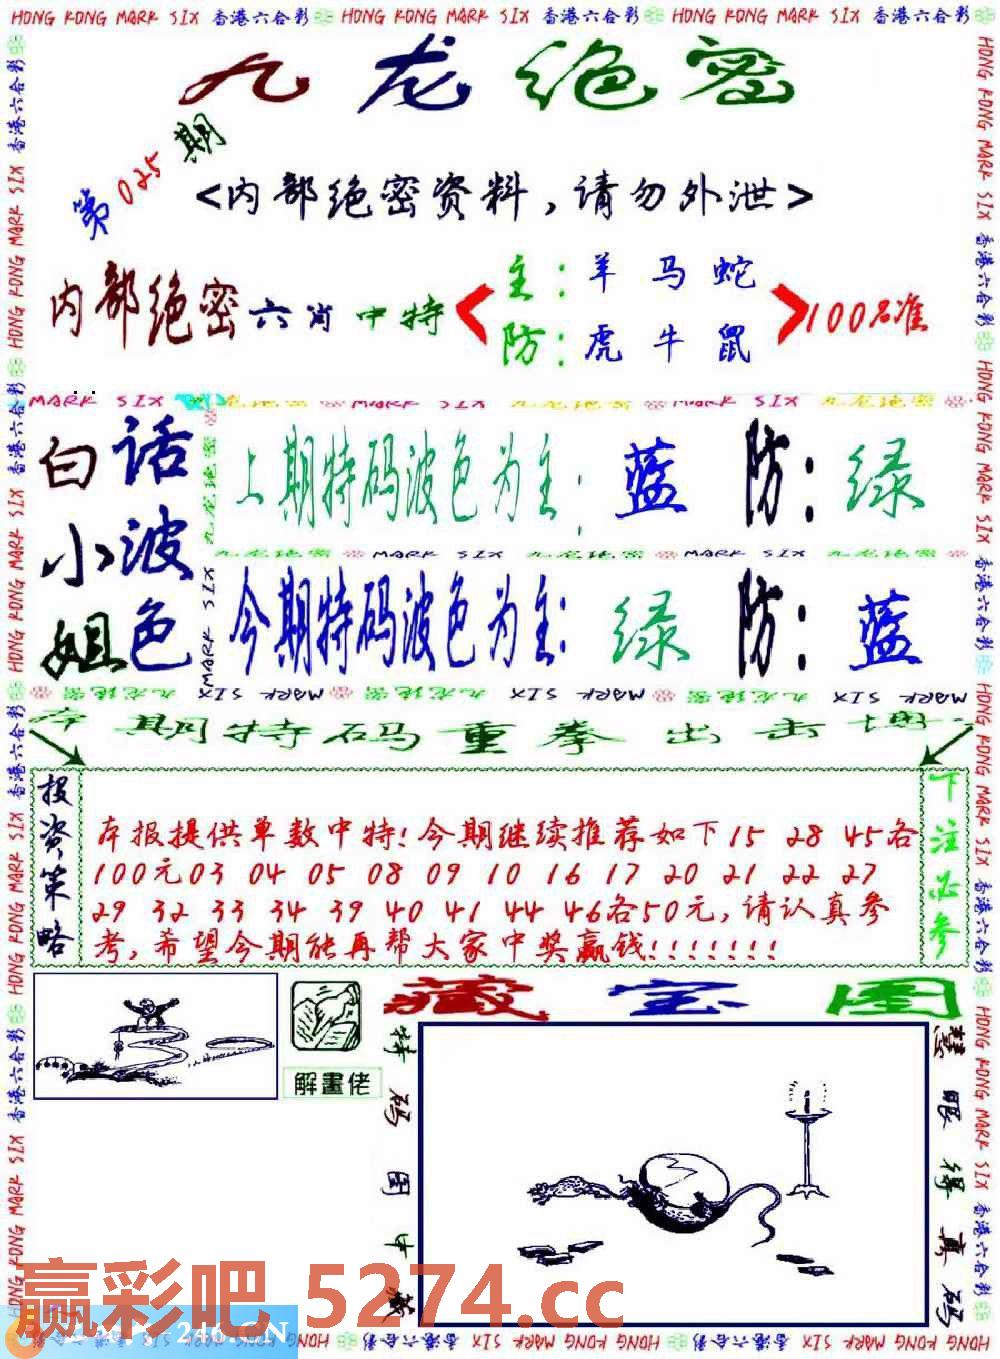 HONG KONG MARK SIX 香港六合彩 HONG KONG MARK SIX 香港六合彩 HONG KONG MARK SIX 香港六合彩
九龙绝密
第025期
<内部绝密资料,请勿外泄>
内部绝密六肖中特
主:羊 马 蛇
防:虎 牛 鼠
100%准
MARK SIX 九龙绝密 MARK SIX 九龙绝密 MARK SIX 九龙绝密
白小姐
话波色
上期特码波色为主: 蓝 防: 绿
九龙绝密 MARK SIX 九龙绝密 MARK SIX 九龙绝密
今期特码波色为主: 绿 防: 蓝
本期特码重拳出击
投资策略
本报提供单数中特!今期继续推荐如下15 28 45各
100元03 04 05 08 09 10 16 17 20 21 22 27
29 32 33 34 39 40 41 44 46各50元,请认真参
考,希望今期能再帮大家中奖赢钱!!!!!!!
下注必参
藏宝图
解畫佬
特码图中藏
慧眼得真码
赢彩吧 5274.cc
246.CN